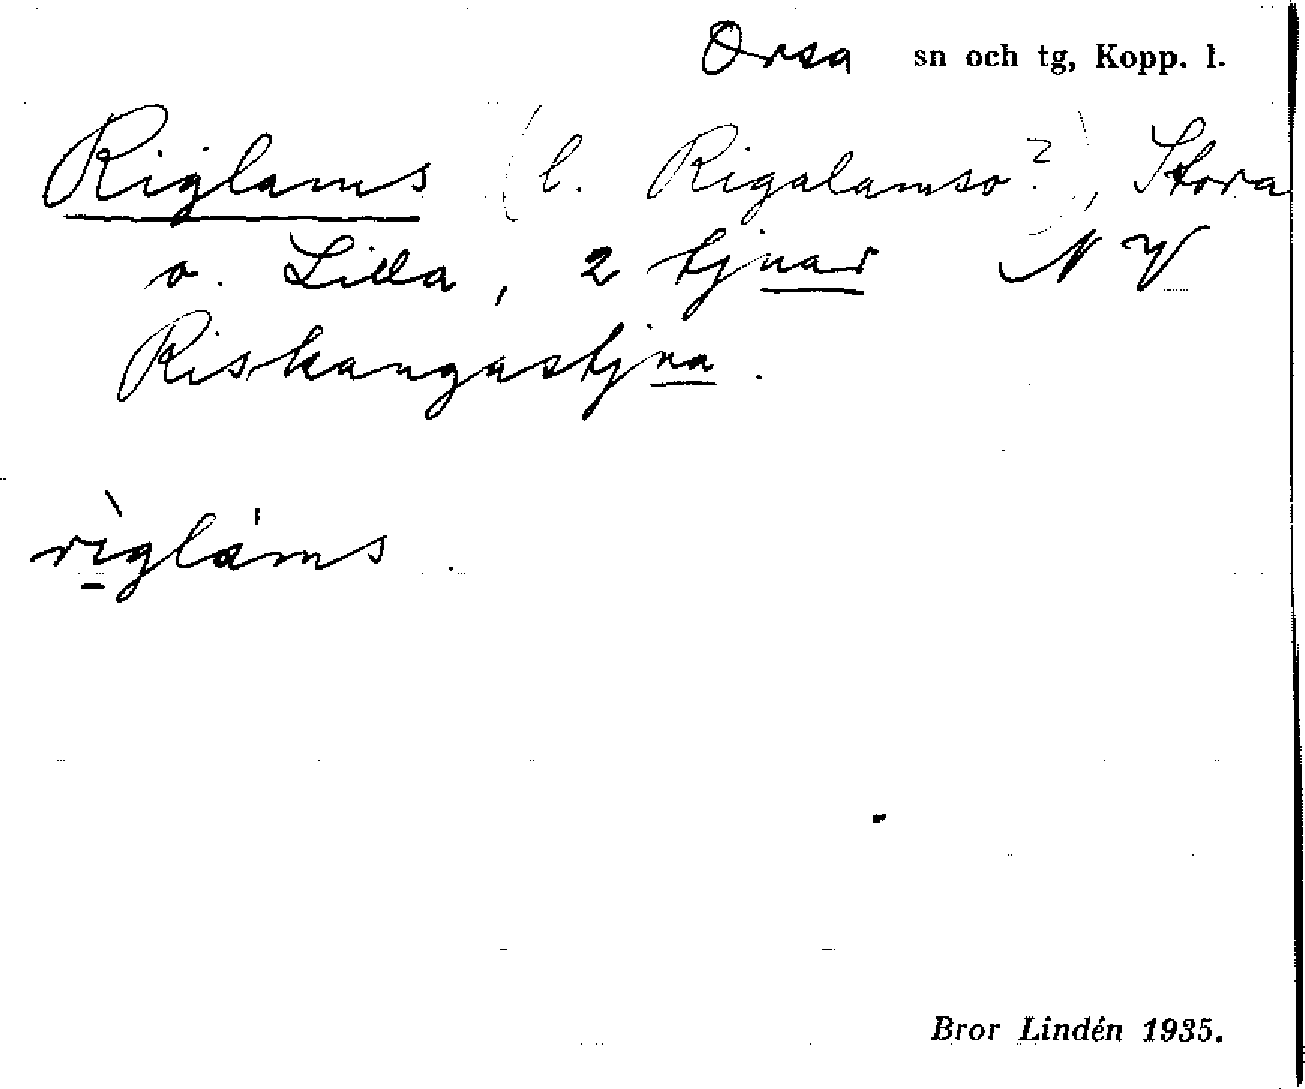 Orsa sn och tg, Kopp. l.
Riglams (l. Rigalamso?), Stora
o. Lilla, 2 tjnar N V
Riskangastjna.
rìgláms
Bror Lindén 1935.